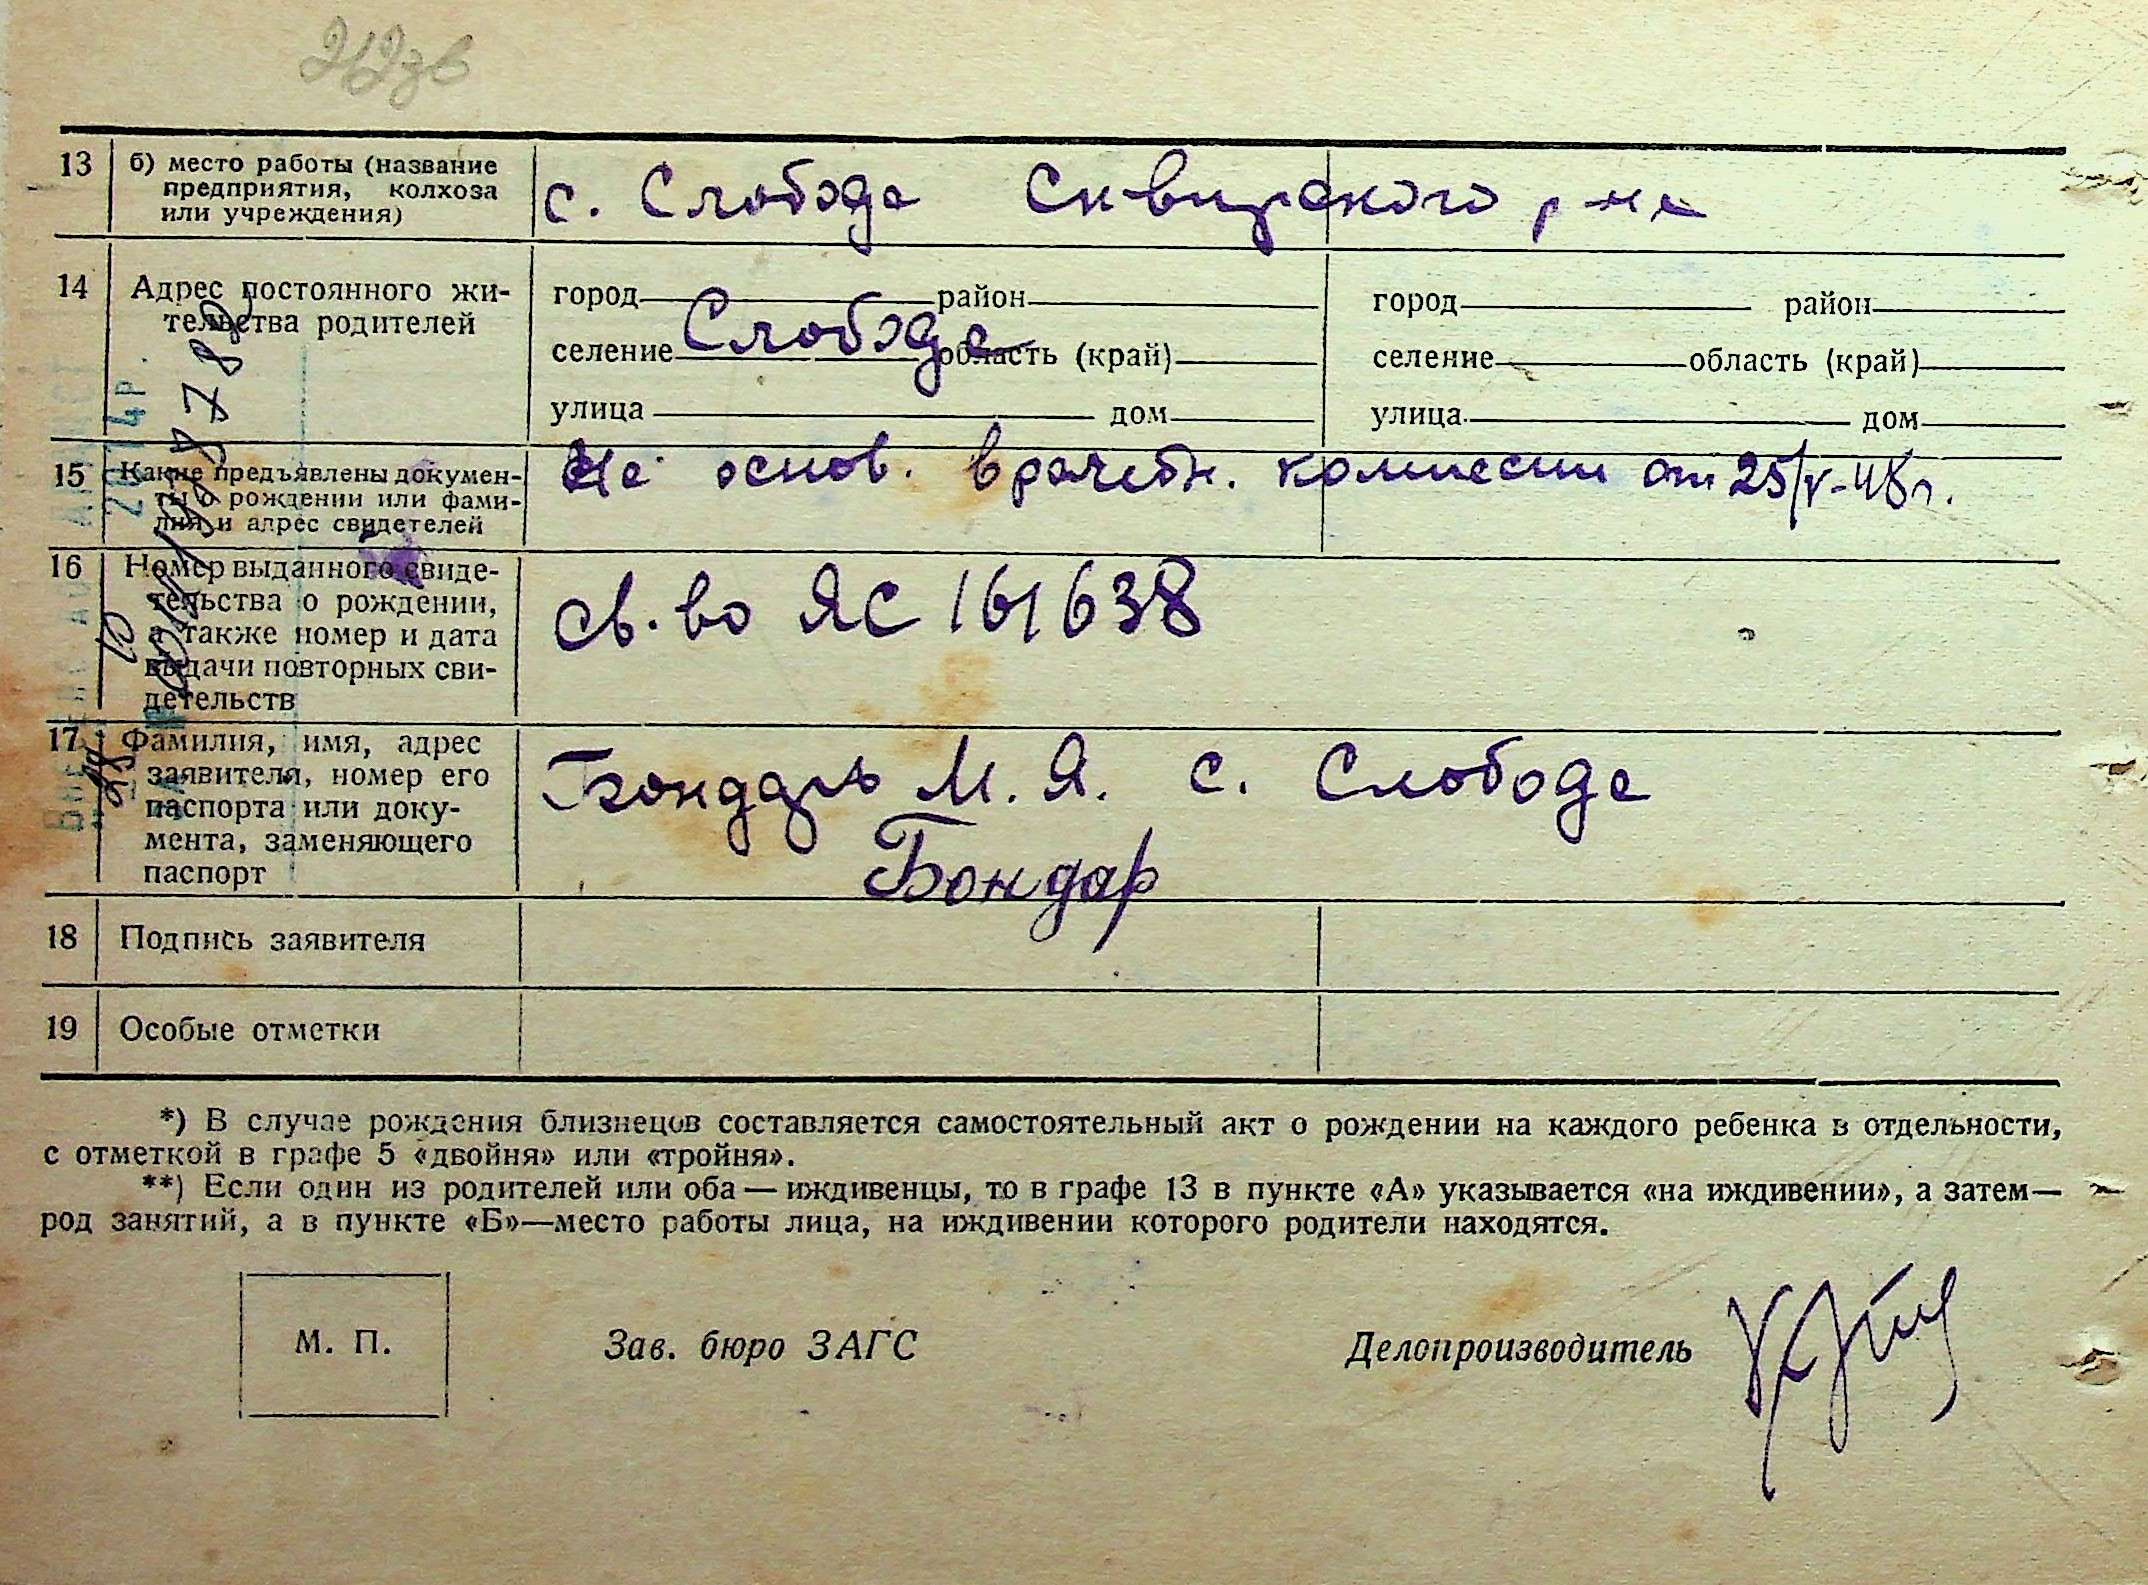 212зв
13 б) место работы (название
предприятия, колхоза
или учреждения)
с. Слобода Сквирского р-на
14 Адрес постоянного жи-
тельства родителей
город район город район
селение Слобода область (край) селение область (край)
улица дом улица дом
15 Какие предъявлены докумен-
ты о рождении или фами-
лия и адрес свидетелей
На основ. врачебн. комиссии от 25/V-48 г.
16 Номер выданного свиде-
тельства о рождении,
а также номер и дата
выдачи повторных сви-
детельств
Св-во ЯС 161638
17 Фамилия, имя, адрес
заявителя, номер его
паспорта или доку-
мента, заменяющего
паспорт
Бондарь М. Я. с. Слобода
Бондар
18 Подпись заявителя
19 Особые отметки
*) В случае рождения близнецов составляется самостоятельный акт о рождении на каждого ребенка в отдельности,
с отметкой в графе 5 «двойня» или «тройня».
**) Если один из родителей или оба — иждивенцы, то в графе 13 в пункте «А» указывается «на иждивении», а затем—
род занятий, а в пункте «Б»—место работы лица, на иждивении которого родители находятся.
М. П. Зав. бюро ЗАГС Делопроизводитель